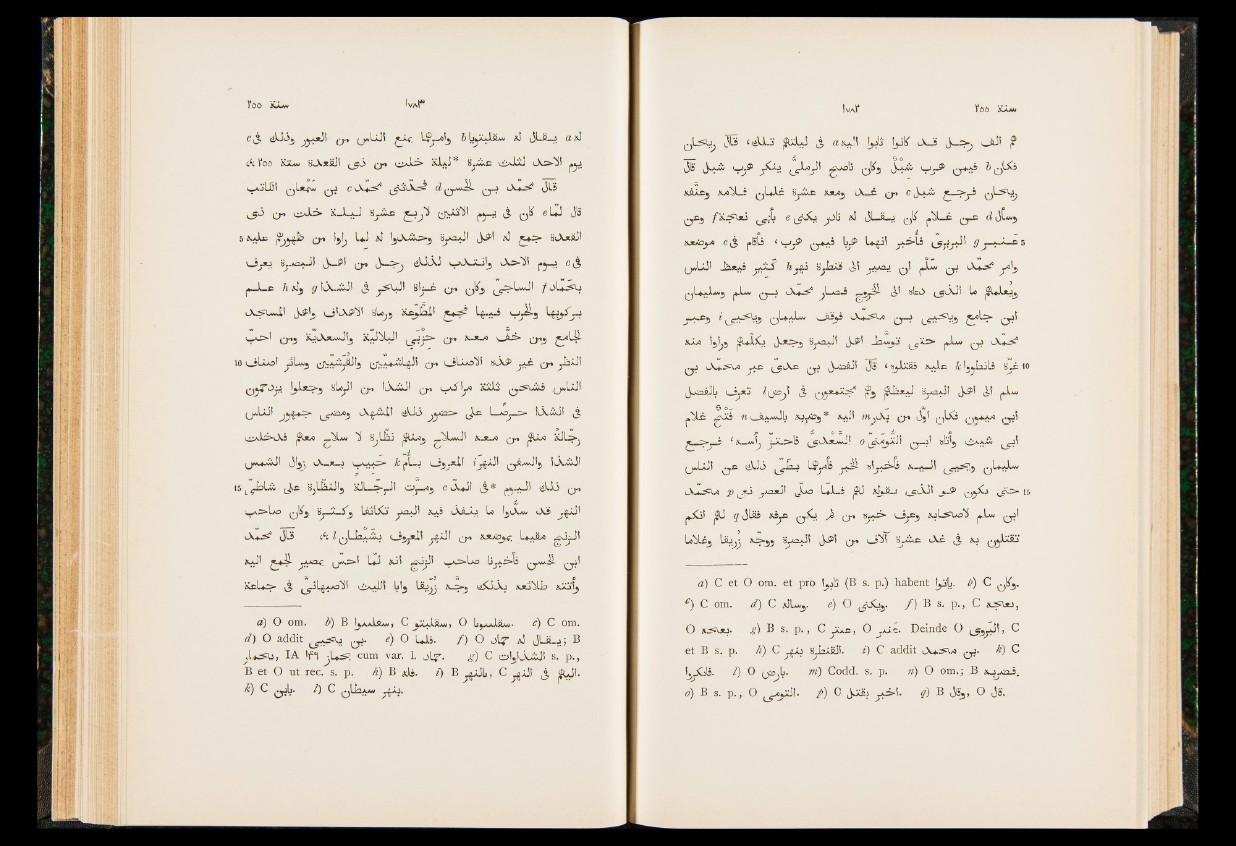 سنة ٢٥٥ ١٧٨٢
ثم الف رجل قد كانوا ثابوا اليه a فى ليلتهم تلك، قال ريحان
فكان b فيمن هرب شبل وكان ناصح الرملىّ ينكر هرب شبل قال
ريحان فرجع شبل c من غد ومعه عشرة غلمان فلامه وعنّفه
وسأل d عن غلام كان يقال له نادر يكنى e بأبى نعجة f وعن
5 عنبر g البربرىّ فأخبر انهما هربا فيمن هرب، فأقام فى c موضعه
وامر محمّد بن سلّم ان يصير الى قنطرة نهر h كثير فيعظ الناس
ويُعلمهم ما الذى دعاه الى الخروج فصار محمّد بن سلم وسليمان
ابن جامع ويحيى بن محمّد فوقف سليمان ويحيى i وعبر
محمّد بن سلم حتى توسّط اهل البصرة وجعل يكلّمهم وراوا منه
10 غرّة فانطووا k عليه فقتلوه، قال الفضل بن عدىّ عبر محمّد بن
سلم الى اهل البصرة ليعظهم وهم مجتمعون فى ارض l تعرف بالفضل
ابن ميمون فكان اوّل من بدر m اليه *وضربه بالسيف n فتح غلام
ابى شيث وأتاه ابن التُومَنىّ o السعدىّ فاحتزّ رأسه، فرجع
سليمان ويحيى اليه فأخبراه الخبر فأمرهما بطىّ ذلك عن الناس
15 حتى يكون هو الذى يقوله لهم فلمّا صلى العصر نعى p محمّد
ابن سلم لأصحابه وعرف خبره من لم يكن عرفه فقال q لهم انكم
تقتلون به فى غد عشرة آلاف من اهل البصرة ووجّه زُريقا وغلاما
a) C et O om. et pro ثابوا (B s. p.) habent باتوا. b) C وكان.
c) C om. d) C وساله. e) O ويكنى. f) B s. p., C
O g) B s. p., C عنتر, O Deinde O البروى, C
et B s. p. h) C القنطرة بنهر. i) C addit بن محمد. k) C
l) O بارض. m) Codd. s. p. n) O om.; B فضربه.
o) B s. p., O التومى. p) C اخبر بقتل. q) B وقال, O قال.
سنة ٢٥٥ ١٧٨٣
له a يقال له سقلبتويا b وامرهما بمنع الناس من العبور وذلك فى c
يوم الأحد لثلث عشرة *ليلة خلت من ذى القعدة سنة ٢٥٥ ۞
قال محمّد بن الحسن d حدّثنى محمّد c بن سمعان الكاتب
قال لمّا e كان فى يوم الاثنين لأربع عشرة ليلة خلت من ذى
5 القعدة جمع له اهل البصرة وحشدوا له لما راوا من ظهورهم عليه
فى c يوم الأحد وانتدب لذلك رجل من اهل البصرة يعرف
بحمّاد f الساجىّ وكان من غزاة البحر فى الشذا g وله h علم
بركوبها والحرب فيها فجمع المطّوّعة ورماة الأهداف واهل المسجد
الجامع ومن خفّ معه من حزبَى البلاليّة والسعديّة ومن احبّ
10 النظر من غير هذه الأصناف من الهاشميّين والقُرَشيّين وسائر اصناف
الناس فشحن ثلثة مراكب من الشذا من الرماة وجعلوا يزدحمون
فى الشذا حرصا على حضور ذلك المشهد ومضى جمهور الناس
رجّالة منهم من معه السلاح ومنهم نظّارة لا سلاح معهم فدخلت
الشذا والسفن النهر i المعروف بأمّ k حبيب بعد زوال الشمس
15 من ذلك اليوم *فى المدّ c ومرّت الرجّالة والنظّارة على شاطئ
النهر قد سدّوا ما ينفذ فيه البصر تكاثفا وكثرة وكان صاحب
الزنج مقيما بموضعه من النهر المعروف بشَيْطان l ۞ قال محمّد
ابن الحسن فأخبرنا صاحب الزنج انه لمّا احسّ بمصير الجمع اليه
وأتته طلائعه بذلك وجّه زُريقا وابا الليث الأصبهانىّ فى جماعة
a) O om. b) B C سقلبتو, O c) C om.
d) O addit بن يحيى. e) O فلما. f) O يقال له حماد; B
IA ١٤٦ cum var. l. حماد. g) C s. p.,
B et O ut rec. s. p. h) B فله. i) B بالنهر, C اليهم فى النهر.
k) C بابن. l) C بنهر سيطان.